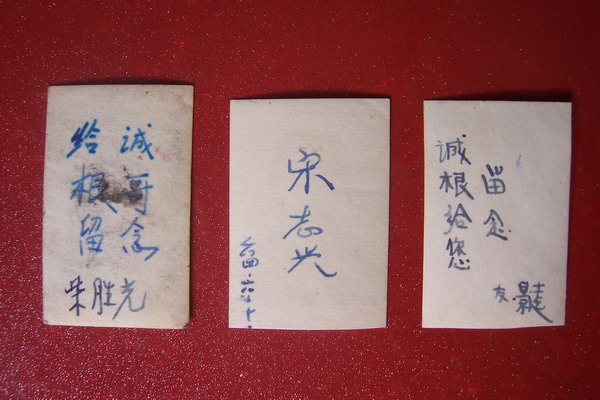 给诚
根哥
留念
朱胜光
宋志兴
诚根给您
留念
友